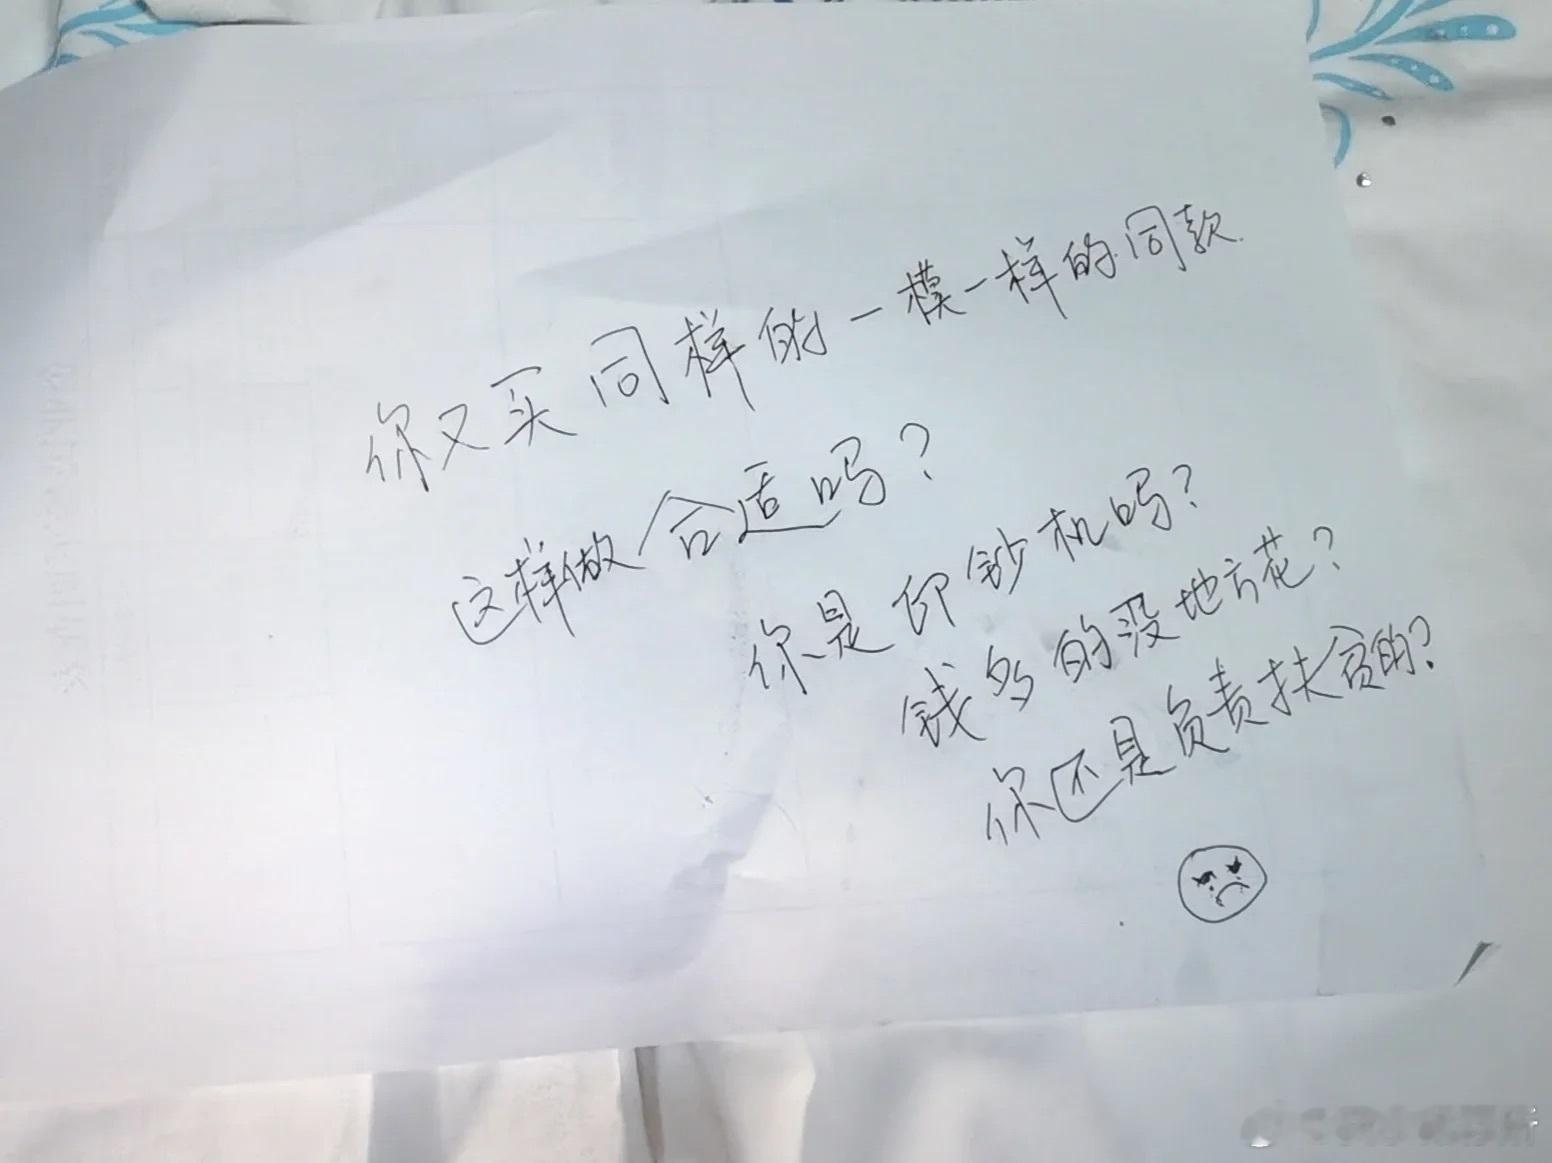 你又买同样的一模一样的同款
这样做合适吗？
你是印钞机吗？
钱多的没地方花？
你还是负责扶贫的？